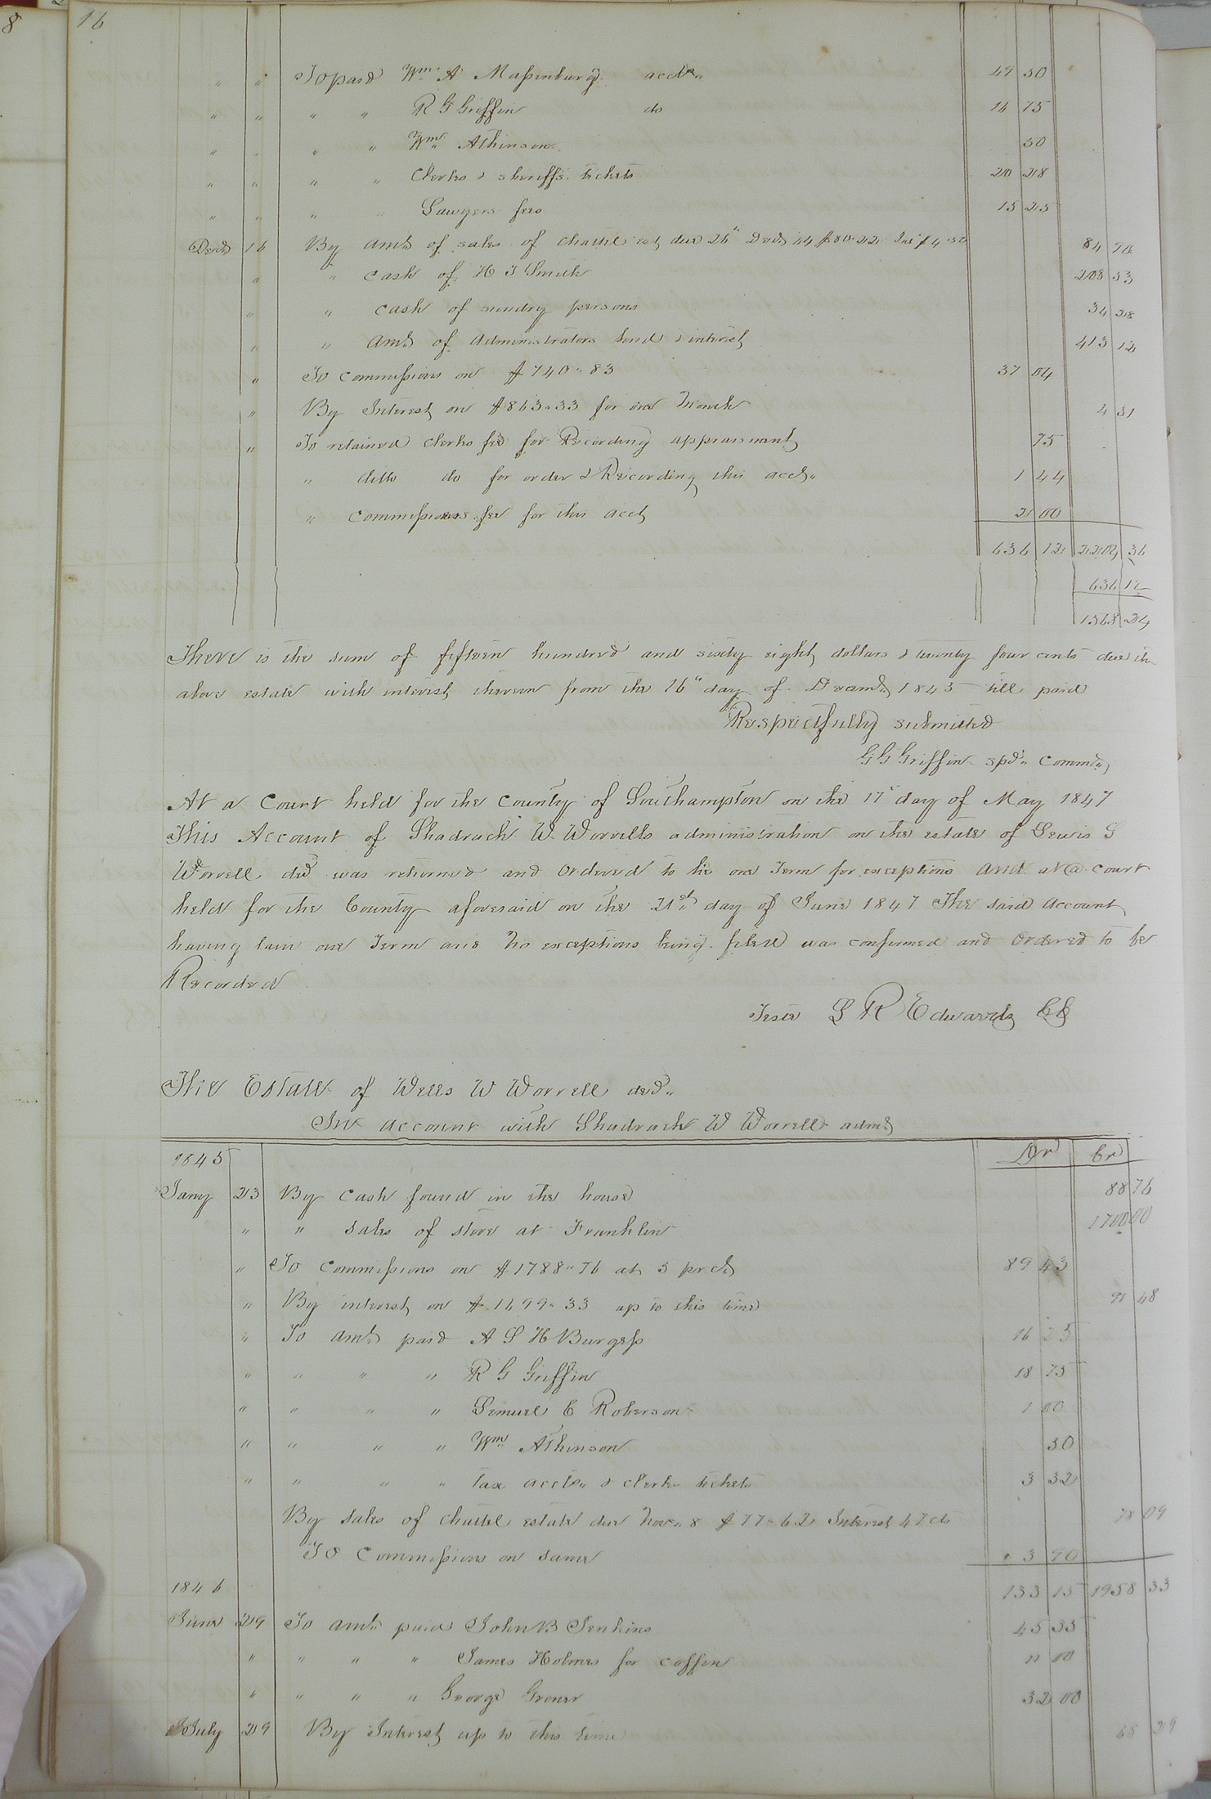 8
16
" " To paid Wm A Massenburg acct " 49 50
" " " " R G Griffin do 14 75
" " " " Wm Atkinson 50
" " " " Clerks & sheriffs tickets 20 28
" " " " Lawyers fees 15 25
Decr 16 By amt of sales of chattel est due 26th Decr 44 $80.22 Int $4.
" " cash of H T Smith 208 33
" " cash of sundry persons 34 28
" " amt of administrators bond & interest 413 12
" To commissions on $740.83 37 04
" By Interest on $863.33 for one month 4 31
" To retained clerks fee for Recording appraisment 75
" ditto do for order & Recording this acct " 1 44
" commissioners fee for this acct 2 00
636 12 2204 36
636 12
1568 24
There is the sum of fifteen hundred and sixty eight dollars & twenty four cents due the
above estate with interest thereon from the 16th day of Decemr 1845 till paid
Respectfully submitted
G G Griffin spl. Commr
At a Court held for the County of Southampton on the 17th day of May 1847
This Account of Shadrach W. Worrells administration on the estate of Lewis S
Worrell decd was returned and Ordered to lie one Term for exceptions and at a court
held for the County aforesaid on the 21st day of June 1847 The said account
having lain one Term and no exceptions being filed was confirmed and Ordered to be
Recorded
Teste L R Edwards CC
The Estate of Wells W Worrell decd "
In account with Shadrach W Worrell admr
1845 Dr Cr
Jany 23 By cash found in the house 88 76
" " sales of store at Franklin 1700 00
" To commissions on $1788.76 at 5 prct 89 43
" By interest on $1699.33 up to this time 48
" To amt paid A S H Burgess 16 25
" " " " R G Griffin 18 75
" " " " Lemuel C Roberson 1 00
" " " " Wm Atkinson 50
" " " " Tax acct & clerks tickets 3 32
By sales of chattel estate due Novr 8 $77.62 Interest 47 cts 78 09
To Commissions on same 3 90
1846 133 15 1958 33
June 29 To amt paid John B Jenkins 45 35
" " " " James Holmes for coffin 00
" " " " George Groner 32 00
July 29 By Interest up to this time 68 29